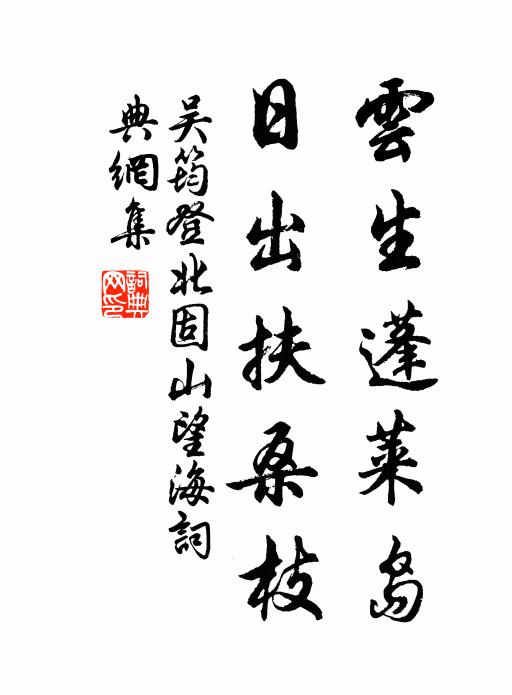 雲生蓬萊島
日出扶桑枝
吴筠登北固山望海詞
典網集
詞典網印